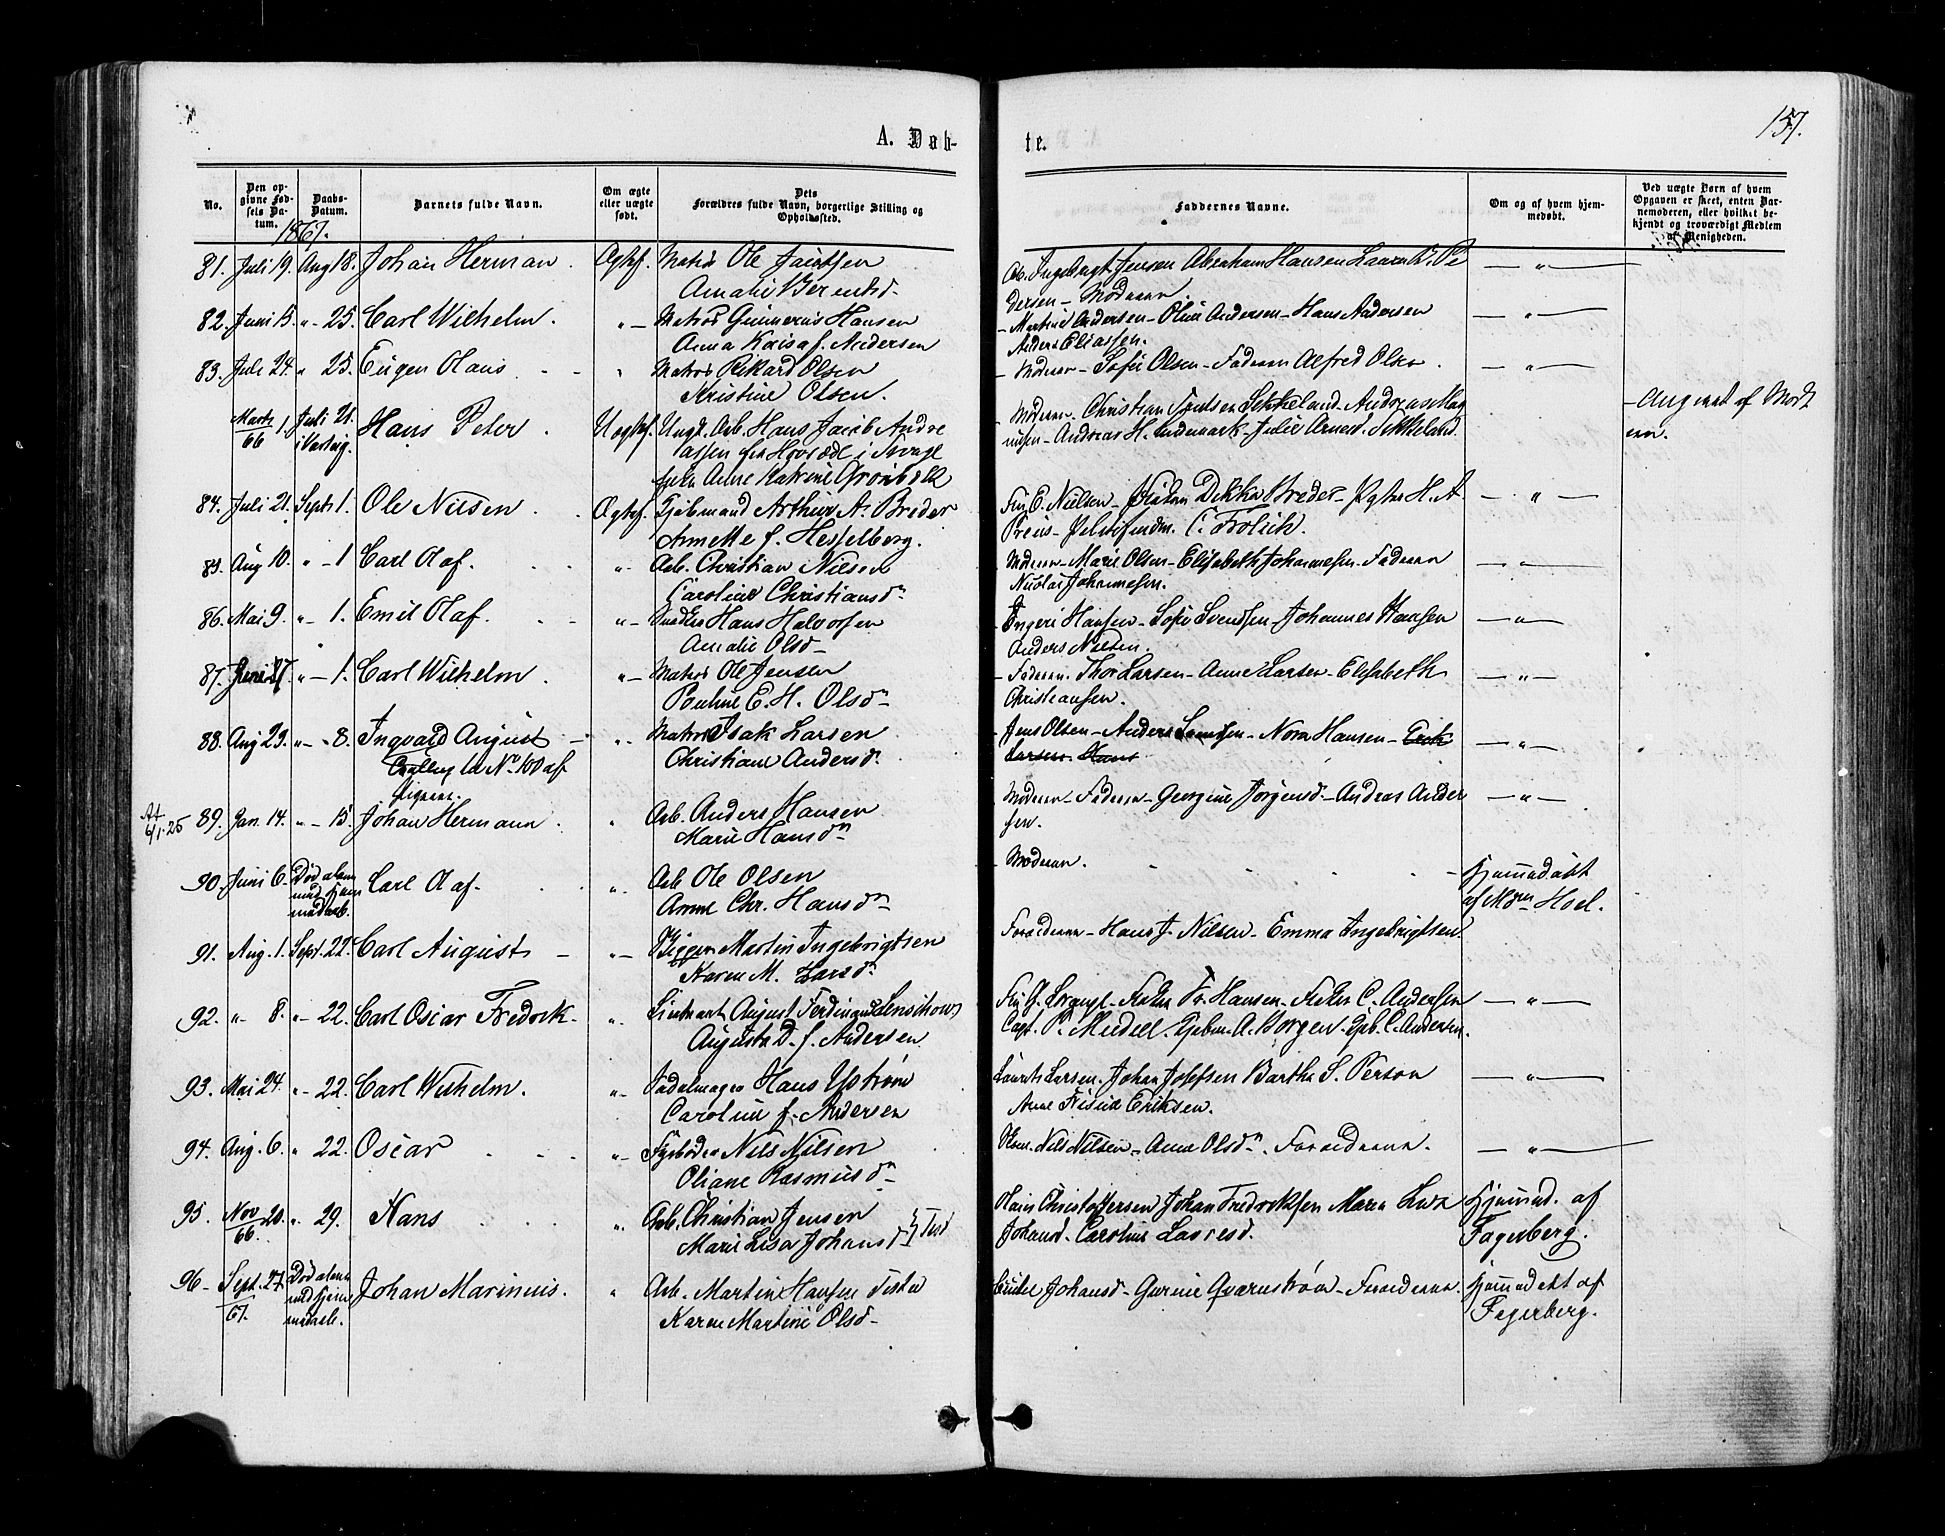 157.
A. Døb-
te.
No.
Den opgivne Fødsels Datum.
Daabs-Datum.
Barnets fulde Navn.
Om ægte eller uægte født.
Dets Forældres fulde Navn, borgerlige Stilling og Opholdssted.
Faddernes Navne.
Om og af hvem hjemmedøbt.
Ved uægte Børn af hvem Opgaven er skeet, enten Barnemoderen, eller hvilket bekjendt og troværdigt Medlem af Menigheden.
1867.
81. Juli 19. Aug 18. Johan Herman. Ægtef. Matros Ole Jacobsen
Amalie Berentsd.
Ingebregt Jensen Abraham Hansen Laura Pe
dersen - Moderen — " —
82. Juni 15. " - 25. Carl Wilhelm. " - Matros Gunnerius Hansen
Anna Kaisa f. Andersen
Martine Andersen - Oline Andersen - Hans Andersen
Anders Eliassen. — " —
83. Juli 24. " 25. Eugen Hans " Matros Rikard Olsen
Kristine Olsen.
Moderen - Sofie Olsen - Faderen Alfred Olsen. — " —
Marts 1. 66 Juli 21. i Hans Peter. Uægtef. Ungk. Arb. Hans Jacob Andre
Anne Katrine
Moderen. Christian Sikkeland - Andreas Mag
nusen - Andreas H. - Julie Sikkeland.
Angivet af Mode
ren.
84. Juli 21. Sept. 1. Ole Nilsen. Ægtef. Kjøbmand Arthur A. Breder
Annette f. Hesselberg.
Fru E. Nielsen - Frøken Dekka Breder - H. A
Preus - C. Frolich. — " —
85. Aug 10. " - 1 Carl Olaf. " - Arb. Christian Nilsen
Caroline Christiansd.
Moderen - Marie Olsen - Elisabeth Johannesen - Faderen
Nicolai Johannesen. — " —
86. Mai 9. " - 1. Emil Olaf. " - Snedker Hans Halvorsen
Amalie Olsd -
Ingeri Hansen - Sofie Svendsen - Johannes Hansen
Anders Nilsen. — " —
87. Juni 27. " - 1. Carl Wilhelm. " - Matros Ole Jensen
Pauline E. H. Olsdn
Faderen. Thor Larsen - Anne Larsen - Elisabeth
Christiansen. — " —
88. Aug 23. " - 8. Ingvald August " - Matros Isak Larsen
Christiane Andersd.
Tvilling til No 100 af
Jens Olsen - Anders - Nora Hansen - Erik
Larsen. Hans — " —
At 6/1.25
89. Jan. 14. " - 15. Johan Hermann. " Arb. Anders Hansen
Marie Hansdn
Moderen - Faderen - Georgine Jörgensd. - Andreas Ander
sen. — " —
90. Juni 6. Død alene med hjemmedaab. Carl Olaf. " Arb Ole Olsen
Anne Chr. Hansdn
Moderen.
Hjemmedøbt
af Hoel.
91. Aug. 1. Sept. 22. Carl August " - Rigger Martin Ingebrigtsen
Karen M. Larsdn
Forældrene - Hans J. Nilsen - Emma Ingebrigtsen.
92. " 8. " - 22. Carl Oscar Fredrik. " Lieutnant August Ferdinand Lensihow
Augusta D. f. Andersen
Fru - Frøken Fr. Hansen - Frøken C. Andersen
Capt. P. - Kjøbm. A. Borgen - Kjøb. C. Andersen. — " —
93. Mai 24. " - 22. Carl Wilhelm. " - Sadelmager Hans Ystrøm
Caroline f. Andersen
Laurits Larsen. Johan Josefsen Bartha S. Person
Anne Eriksen. — " —
94. Aug. 6. " 22. Oscar " - Fyrbøder Nils Nilsen
Oliane Rasmusdn
Nils Nilsen - Anne Olsdn. Forældrene. — " —
95. Nov 20. 66 " 29. Hans " Arb. Christian Jensen
Marie Lisa Johansd } Tisd
Hans Christoffersen Johan Fredriksen Maren Lura
Johansd - Caroline Larsesd.
Hjemmed. af
Fagerberg.
96 - Sept. 27. 67. Død alene med hjemmedaab. Johan Marinius. " Arb. Martin Hansen Tistea
Karen Martine Olsd -
Johansd - Gurine Qvarnstrøm - Forældrene.
Hjemmedøbt af
Fagerberg.